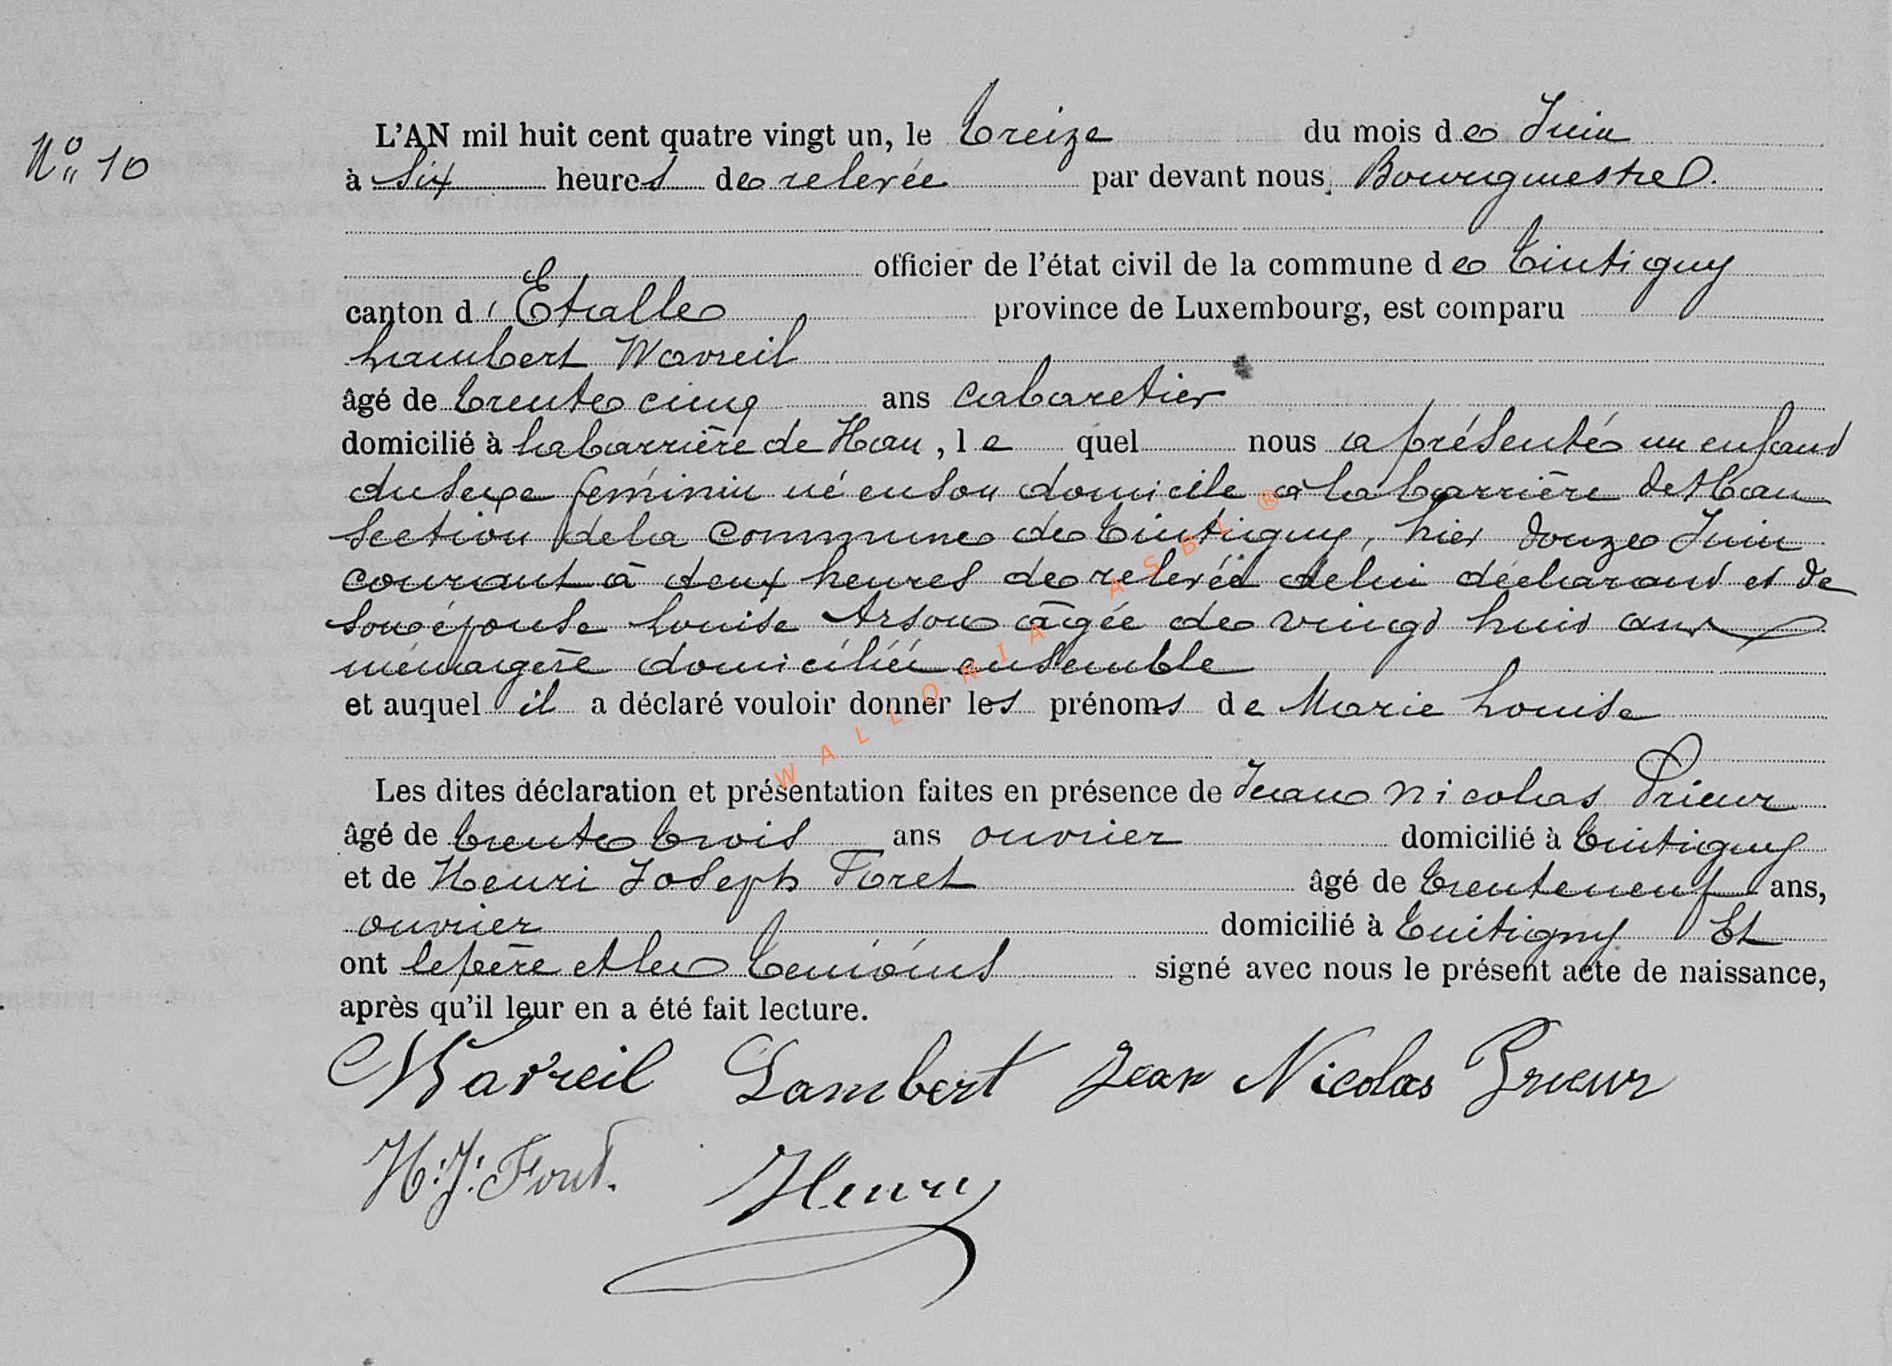 N° 10
L'AN mil huit cent quatre vingt un, le treize du mois de Juin
à six heures de relevée par devant nous, Bourgmestre
officier de l'état civil de la commune de Tintigny
canton d'Etalle province de Luxembourg, est comparu
Lambert Wavreil
âgé de trente cinq ans cabaretier
domicilié à la barrière de Han, lequel nous a présenté un enfant
du sexe féminin né en son domicile à la barrière de Han
section de la commune de Tintigny, hier douze Juin
courant à deux heures de relevée de lui déclarant et de
son épouse Louise Arson âgée de vingt huit ans
ménagère domiciliée ensemble
et auquel il a déclaré vouloir donner les prénoms de Marie Louise
Les dites déclaration et présentation faites en présence de Jean Nicolas Prieur
âgé de trente trois ans ouvrier domicilié à Tintigny
et de Henri Joseph Foret âgé de trente neuf ans,
ouvrier domicilié à Tintigny Et
ont le père et les témoins signé avec nous le présent acte de naissance,
après qu'il leur en a été fait lecture.
Wavreil Lambert Jean Nicolas Prieur
H. J. Henry
WALLONIA ASBL ®